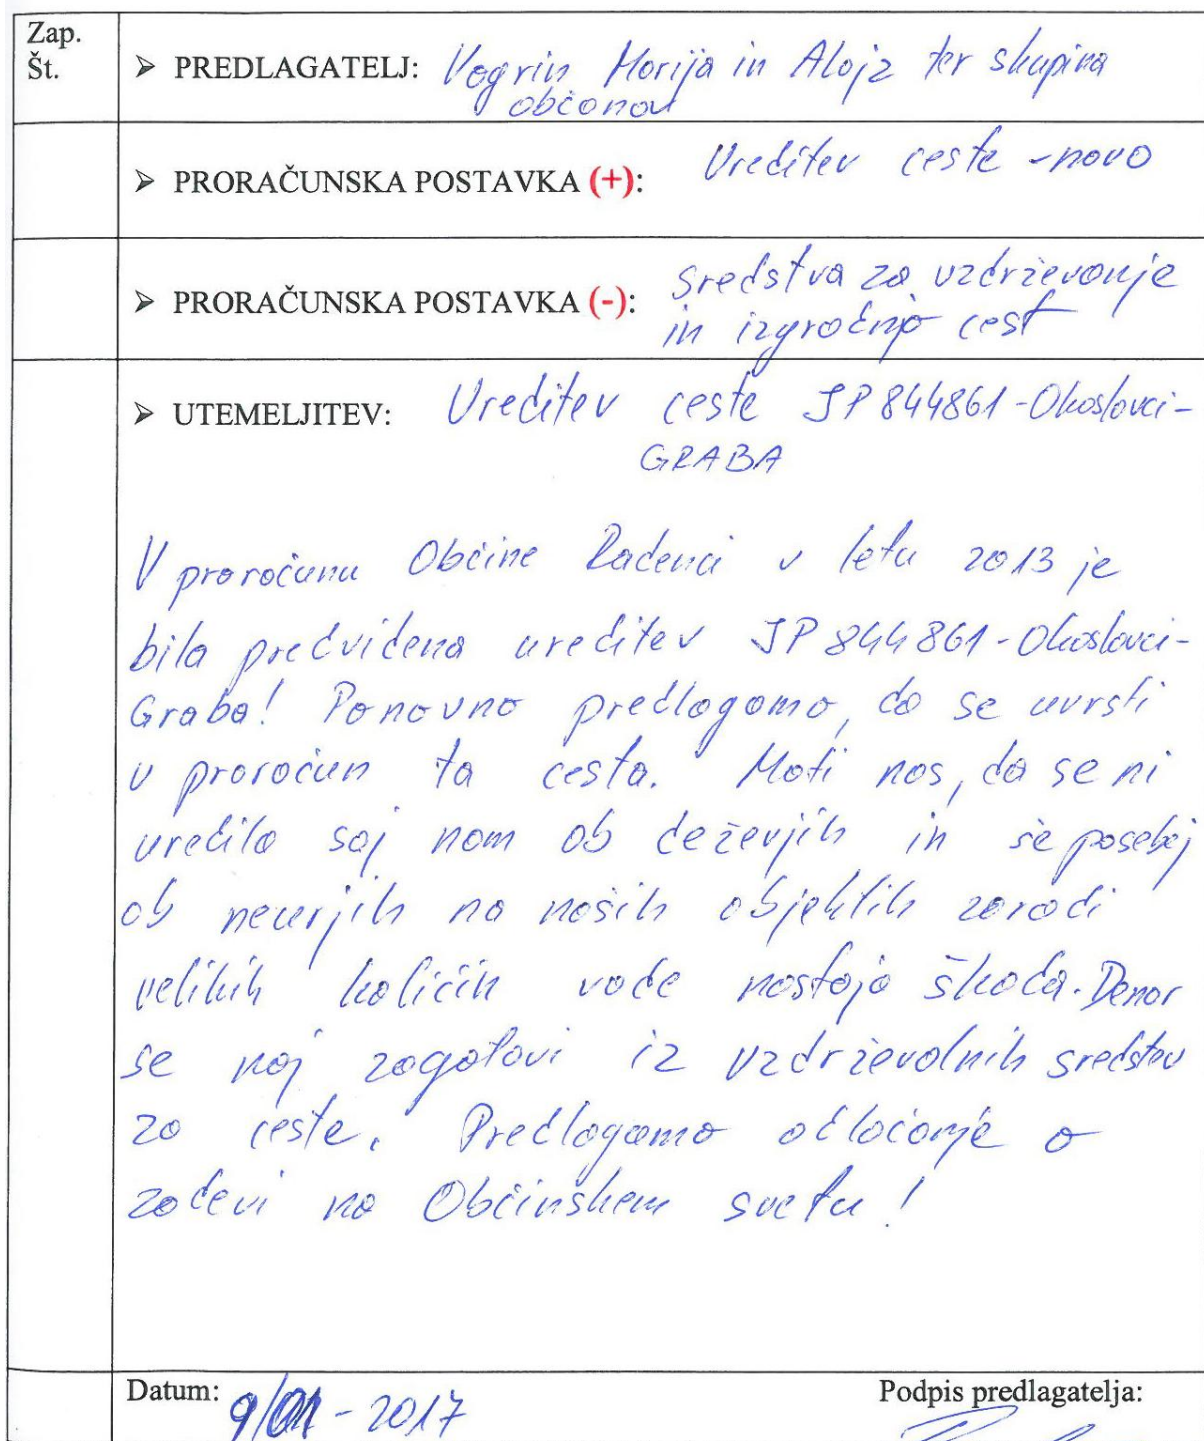 Zap.
Št.
➢ PREDLAGATELJ: Vogrin Marija in Alojz ter skupina
občanov
➢ PRORAČUNSKA POSTAVKA (+): Ureditev ceste - novo
➢ PRORAČUNSKA POSTAVKA (-): sredstva za vzdrževanje
in izgradnjo cest
➢ UTEMELJITEV: Ureditev ceste JP 844861 - Okoslavci -
GRABA
V proračunu Občine Radenci v letu 2013 je
bila predvidena ureditev JP 844861 - Okoslavci -
Graba! Ponovno predlagamo, da se uvrsti
v proračun ta cesta. Moti nas, da se ni
uredila saj nam ob deževjih in še posebej
ob neurjih na naših objektih zaradi
velikih količin vode nastaja škoda. Denar
se naj zagotovi iz vzdrževalnih sredstev
za ceste. Predlagamo odločanje o
zadevi na Občinskem svetu!
Datum: 9/01 - 2017
Podpis predlagatelja: